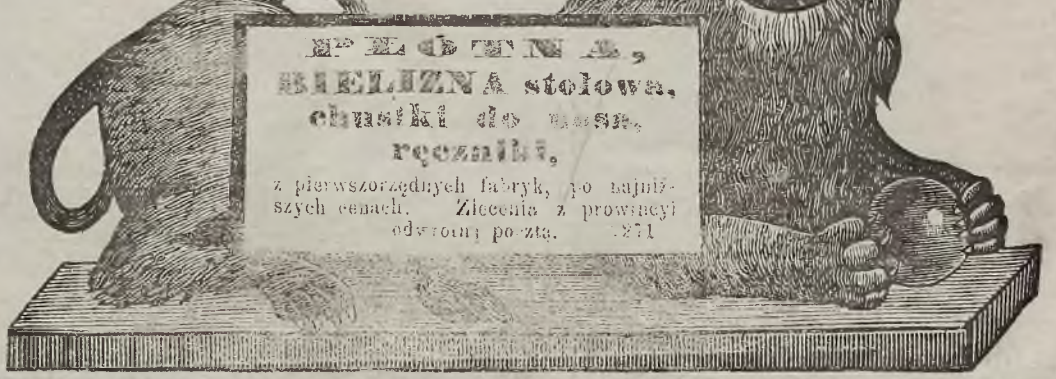 PŁÓTNA,
BIELIZNA stołowa,
chustki do nosa,
ręczniki,
z pierwszorzędnych fabryk, po najniż-
szych cenach. Zlecenia z prowincyi
odwrotną pocztą.